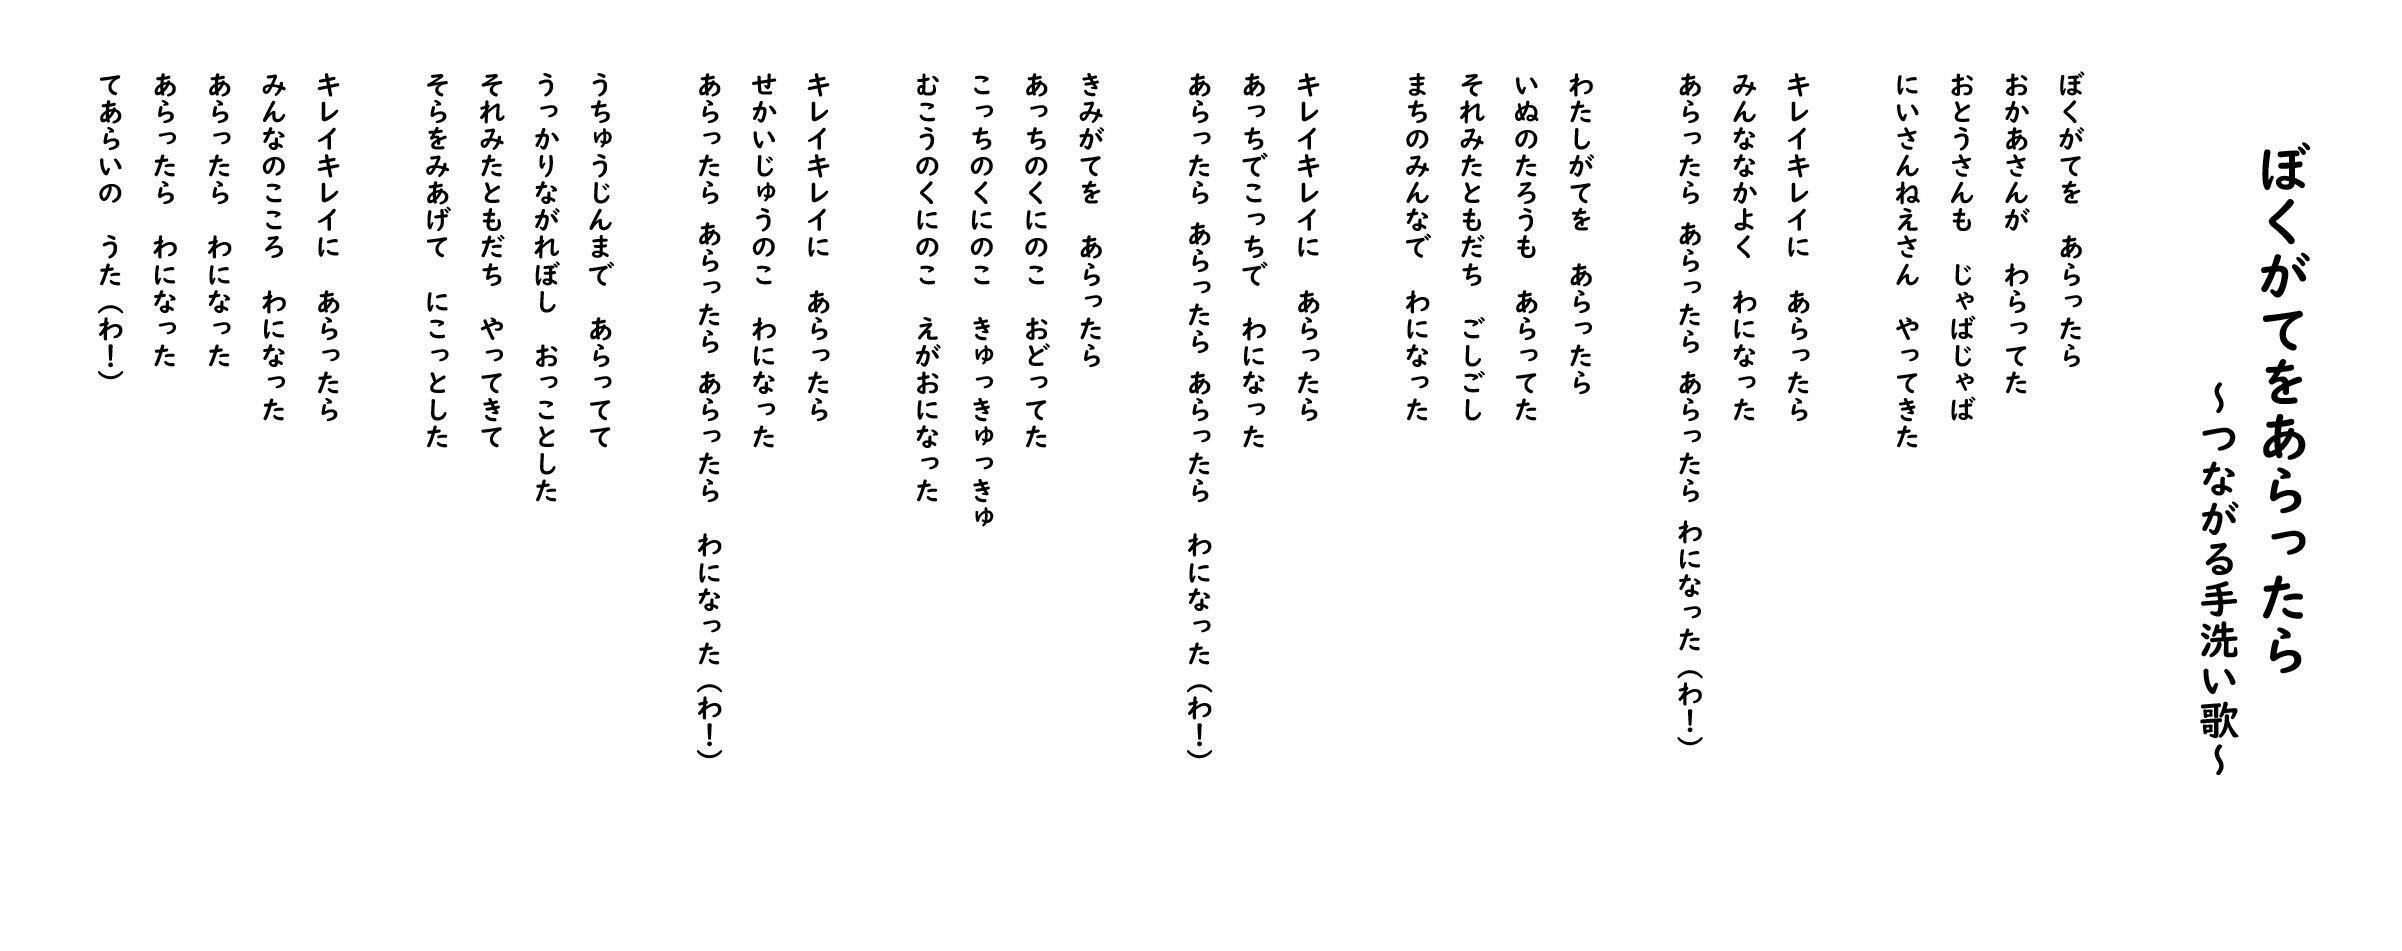 ぼくがてをあらったら
～つながる手洗い歌～
ぼくがてを　あらったら
おかあさんが　わらってた
おとうさんも　じゃばじゃば
にいさんねえさん　やってきた
キレイキレイに　あらったら
みんななかよく　わになった
あらったら あらったら あらったら わになった（わ！）
わたしがてを　あらったら
いぬのたろうも　あらってた
それみたともだち　ごしごし
まちのみんなで　わになった
キレイキレイに　あらったら
あっちでこっちで　わになった
あらったら あらったら あらったら　わになった（わ！）
きみがてを　あらったら
あっちのくにのこ　おどってた
こっちのくにのこ　きゅっきゅっきゅ
むこうのくにのこ　えがおになった
キレイキレイに　あらったら
せかいじゅうのこ　わになった
あらったら あらったら あらったら　わになった（わ！）
うちゅうじんまで　あらってて
うっかりながれぼし　おっことした
それみたともだち　やってきて
そらをみあげて　にこっとした
キレイキレイに　あらったら
みんなのこころ　わになった
あらったら　わになった
あらったら　わになった
てあらいの　うた（わ！）